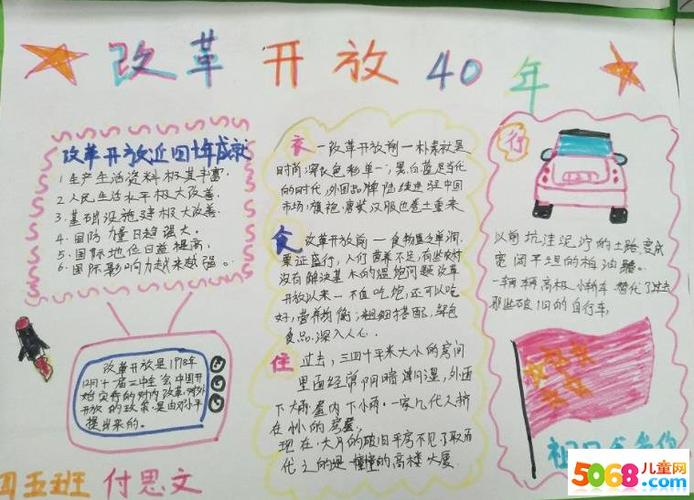 改革开放40年
改革开放近四十年成就
1.生产生活资料极其丰富.
2.人民生活水平极大改善.
3.基础设施建极大改善.
4.国防力量日趋强大.
5.国际地位日益提高.
6.国际影响力越来越强。
改革开放是1978年
12月十一届三中全会中国开
始实行的对内改革,对外
开放的政策.是由邓小平
提出来的.
四五班 付思文
衣 一改革开放前一朴素就是
时尚:穿衣色彩单一;黑白蓝是当代
的时代,外国品牌陆续进驻中国
市场:旗袍唐装汉服也卷土重来
食 改革开放前一食物匮乏单调,
粮证盛行,人们营养不足,有些农村
没有解决基本的温饱问题改革
开放以来一不值吃饱,还可以吃
好,营养均衡;粗细搭配,绿色
食品,深入人心.
住 过去,三四十平米大小的房间
里面经常阴暗潮湿,外面
下大雨屋内下小雨.一家几代人挤
在小小的房屋.
现在,大片的破旧平房不见了取而
代之的是一幢幢的高楼大厦.
行
以前坑洼泥泞的土路,变成
宽阔平坦的柏油路.
一辆辆高极小轿车替代了过去
那些破旧的自行车,
5068儿童网
www.5068.com